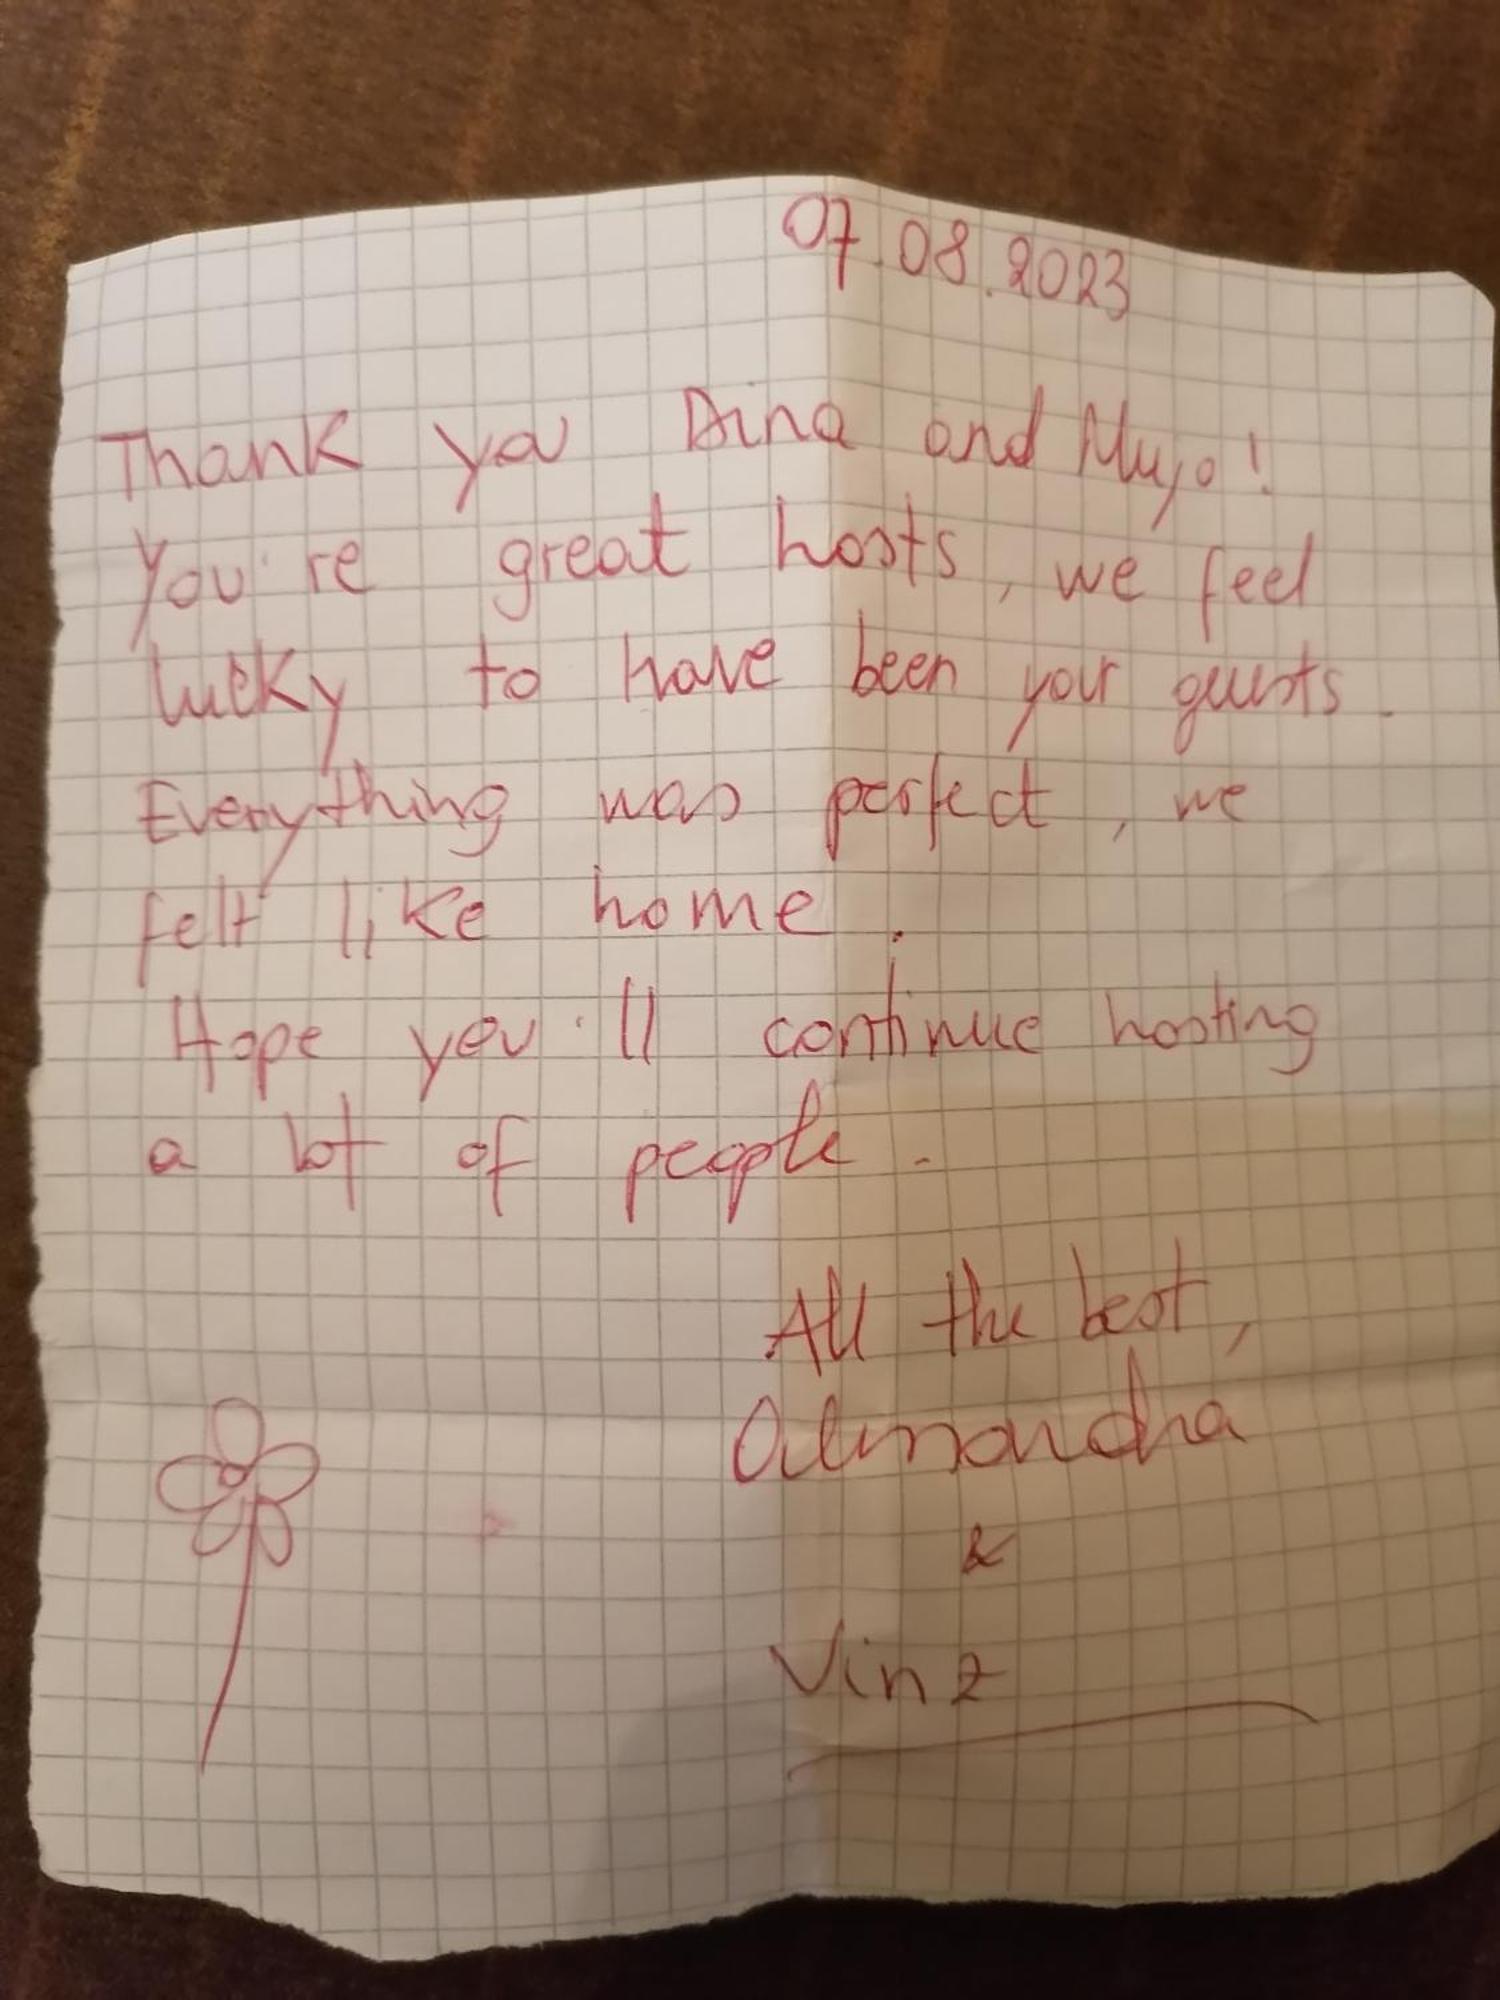 07.08.2023
Thank you Dina and Mujo!
You're great hosts, we feel
lucky to have been your guests.
Everything was perfect, we
felt like home.
Hope you'll continue hosting
a lot of people.
All the best,
&
Vinz